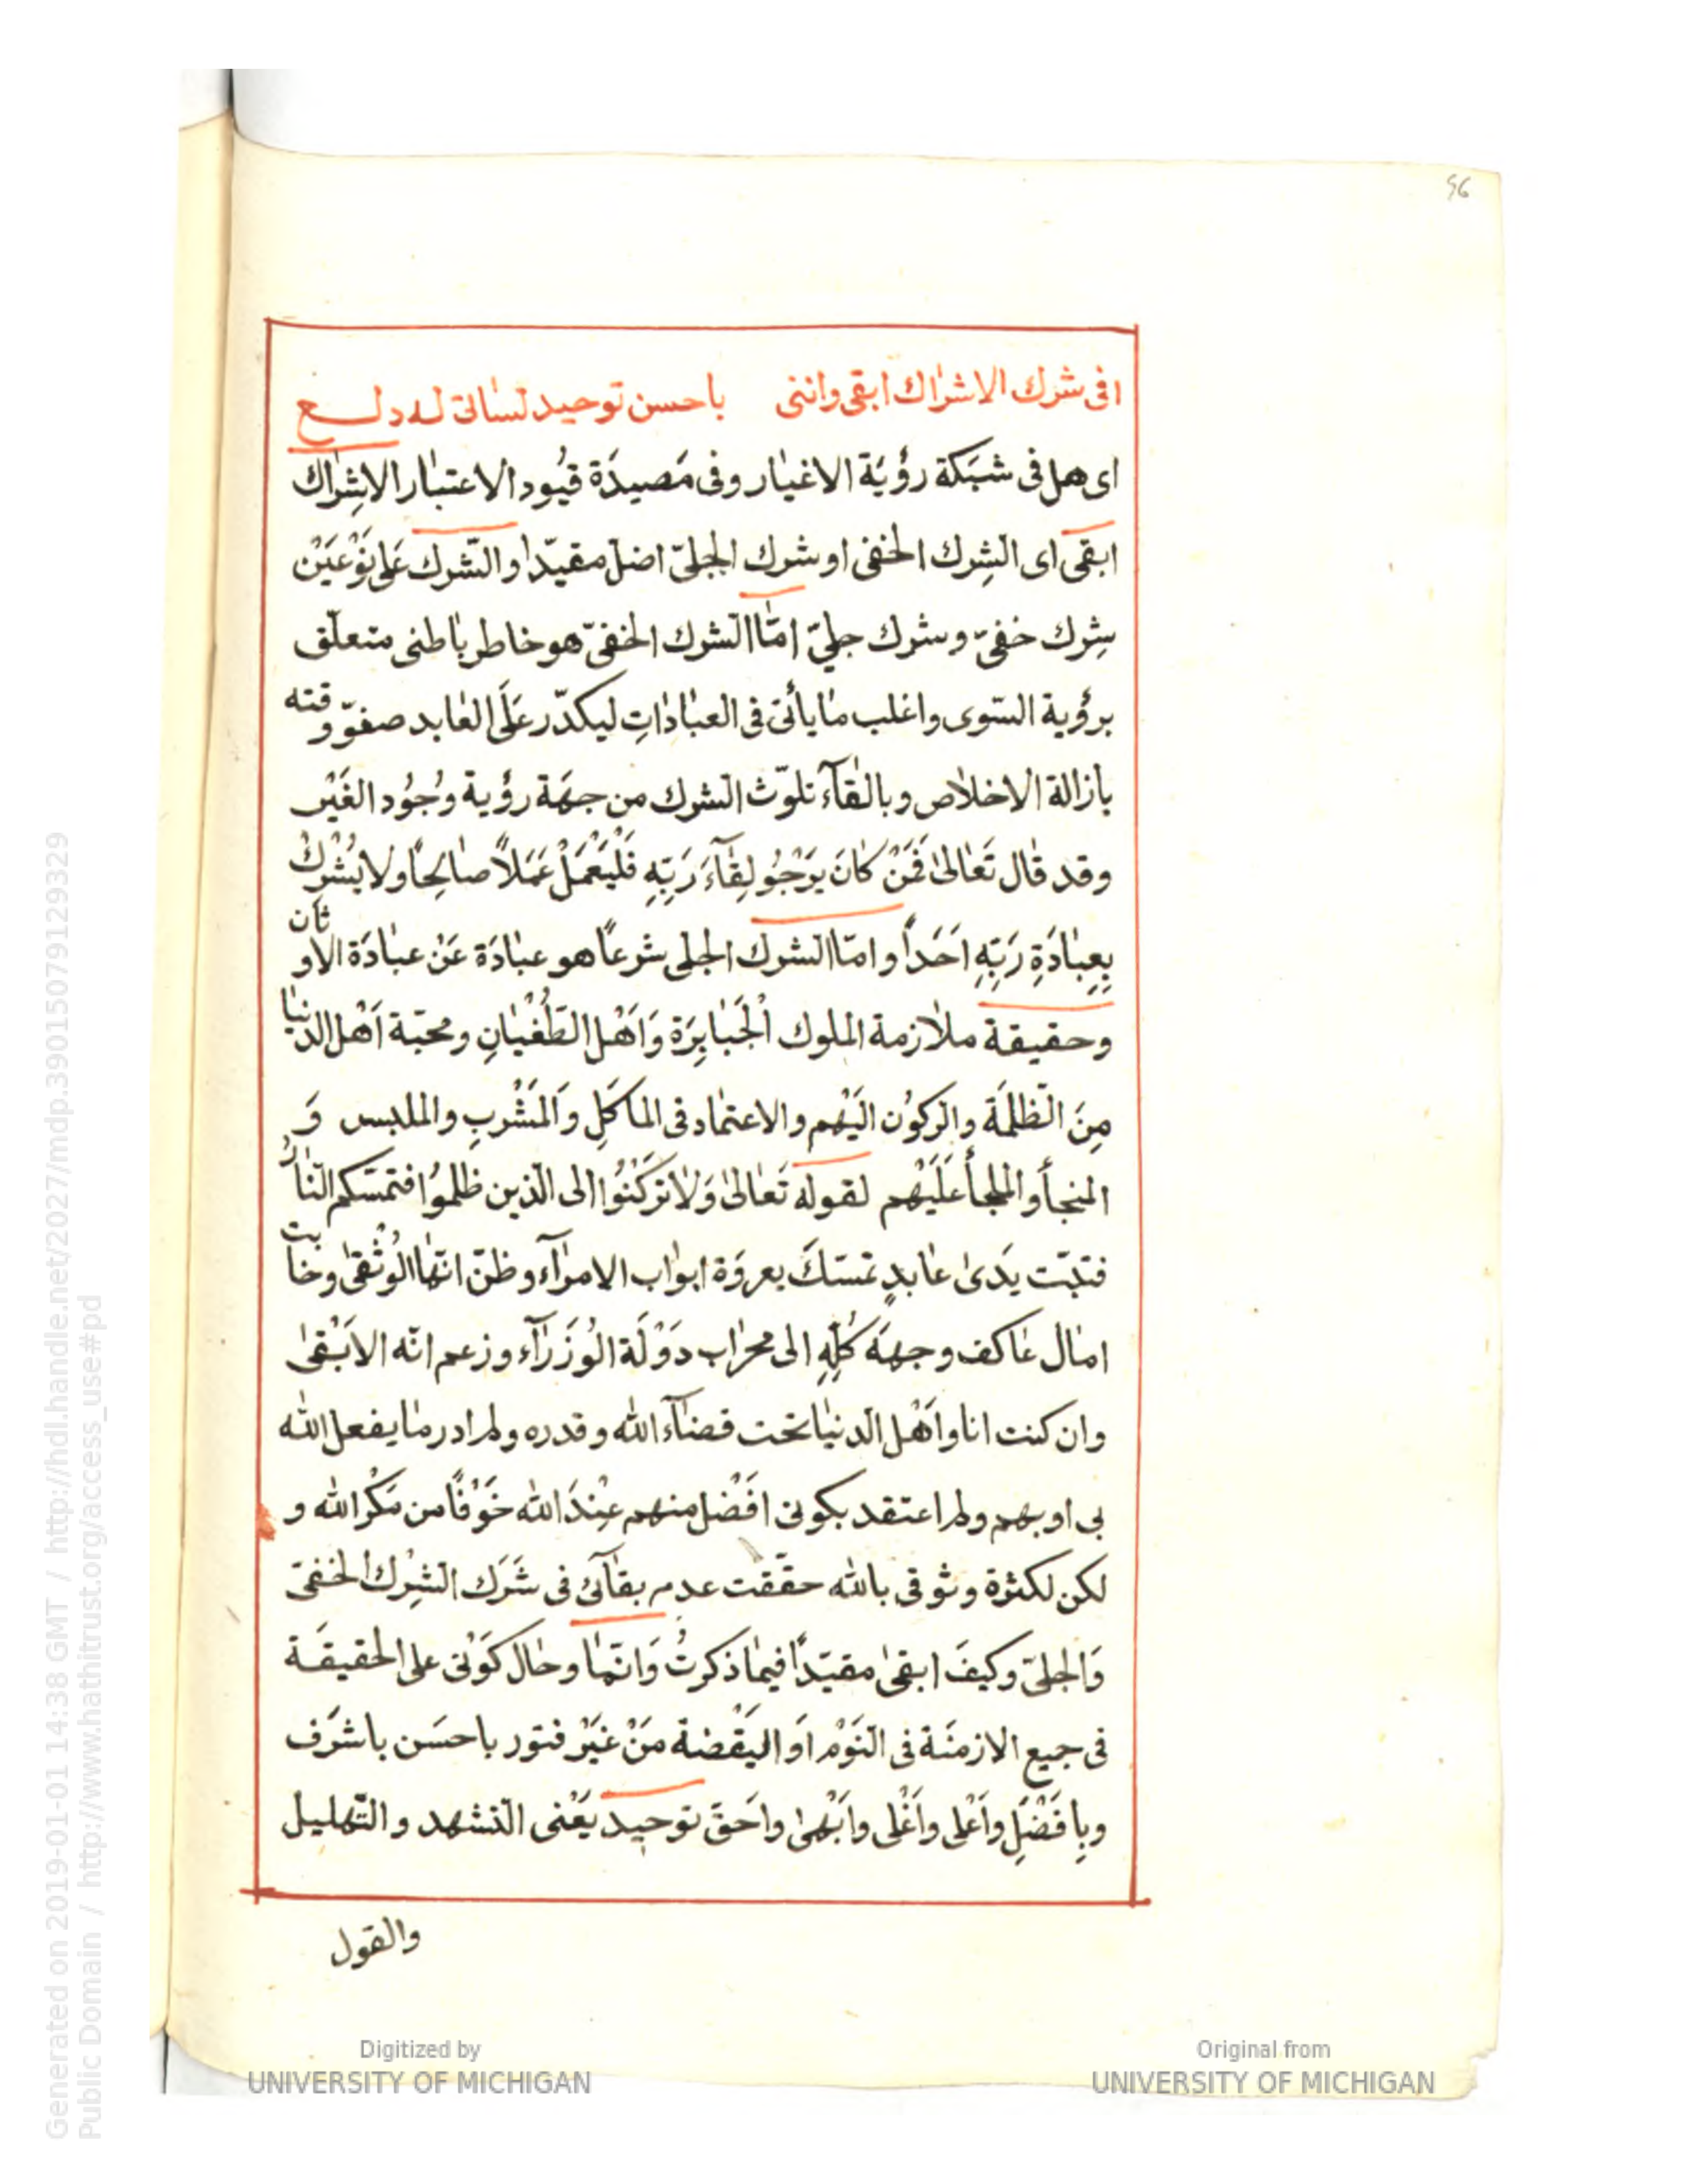 56
افى شرك الاشراك ابقى واننى باحسن توحيد لسانى له دلع
اى هل فى شبَكة رؤيَة الاغيار وفى مَصيدَة قيُود الاعتبار الاشِراك
ابقى اى الشِرك الخفى او شرك الجلىّ اضلّ مقيدّا والشّرك عَلى نَوْعَيْن
شِرك خفىّ وشرك جلىّ امّا الشرك الخفىّ هو خاطر باطنى متعلّق
برؤية السّوى واغلب ما يأتى فى العبادَاتِ ليكدّر عَلَى العابد صفوّ وقته
بازالة الاخلاص وبالقآء تلوّث الشرك من جهَة رؤية وُجوُد الغَيْر
وقد قال تَعَالىٰ فَمَنْ كَانَ يَرْجُو لِقَآءَ رَبِّهِ فَلْيَعْمَلْ عَمَلاً صَالِحًا ولا يُشْرِكْ
بِعِبَادَةِ رَبِّهِ اَحَداً وامّا الشرك الجلى شرعًا هو عبادَة عَنْ عبادَة الاوثان
وحقيقة ملازمة الملوك الْجَبَابِرَة وَاَهْل الطّغْيَانِ ومحبّة اَهْل الدنيا
مِنَ الظلمَة والركوُن اليَهْم والاعتماد فى الماكَلِ وَالمَشْرَبِ والملبس وَ
المنجأ والملجأ عَلَيْهم لقوله تَعَالىٰ وَلا تَركَنُوا الى الذين ظلموُا فتمسّكم النّارُ
فتبّت يدَىٰ عابدٍ تمسّكَ بعروَة ابواب الامرآء وظنّ انّها الوُثْقىٰ وخابت
امال عَاكف وجههَ كُلّهِ الى محراب دَوْلَة الوُزَرَآء وزعم انّه الاَبْقىٰ
وان كنت انا واَهْل الدنيا تحت قضآء الله وقدره ولم ادر ما يفعل الله
بى او بهم ولم اعتقد بكونى افَضْل منهم عِنْدَ الله خَوْفًا من مَكْر الله و
لكن لكثرة وثوقى بالله حقّقت عدم بقآئى فى شَرَك الشِرْك الخفىّ
وَالجلىّ وكيفَ ابقىٰ مقيّدًا فيما ذكرتُ وَانّما وحال كَوْنى على الحقيقَة
فى جميع الازمنَة فى النَوْم اَو اليَقْضة مَنْ غَيْر فتور باحسَن باشرَف
وبِافَضْلِ واَعْلى واَغْلى واَبْهىٰ واحَقّ توحيد يَعْنى التشهد والتّهليل
والقول
Generated on 2019-01-01 14:38 GMT / http://hdl.handle.net/2027/mdp.39015079129329
Public Domain / http://www.hathitrust.org/access_use#pd
Digitized by
UNIVERSITY OF MICHIGAN
Original from
UNIVERSITY OF MICHIGAN